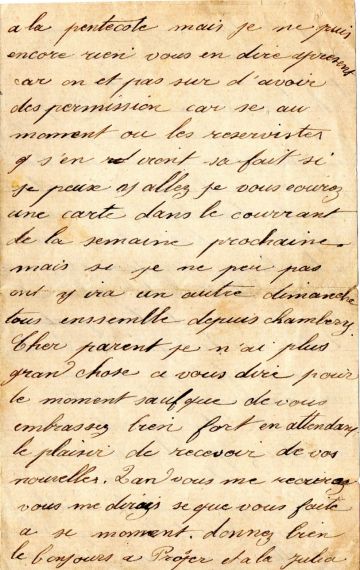 a la pentecote mais je ne puis
encore rien vous en dire apresent
car on et pas sur d'avoir
des permission car se au
moment ou les reservistes
s'en iront sa fait si
je peux y allez je vous
une carte dans le courrant
de la semaine prochaine.
mais si je ne peu pas
ont y ira un autre dimanche
tous enssemble depuis chambery
Cher parent je n'ai plus
gran chose a vous dire pour
le moment sauf que de vous
embrassez bien fort en attendant
le plaisir de recevoir de vos
nouvelles. Quan vous me
vous me direz se que vous faite
a se moment. donnez bien
le bonjours a et a la julia